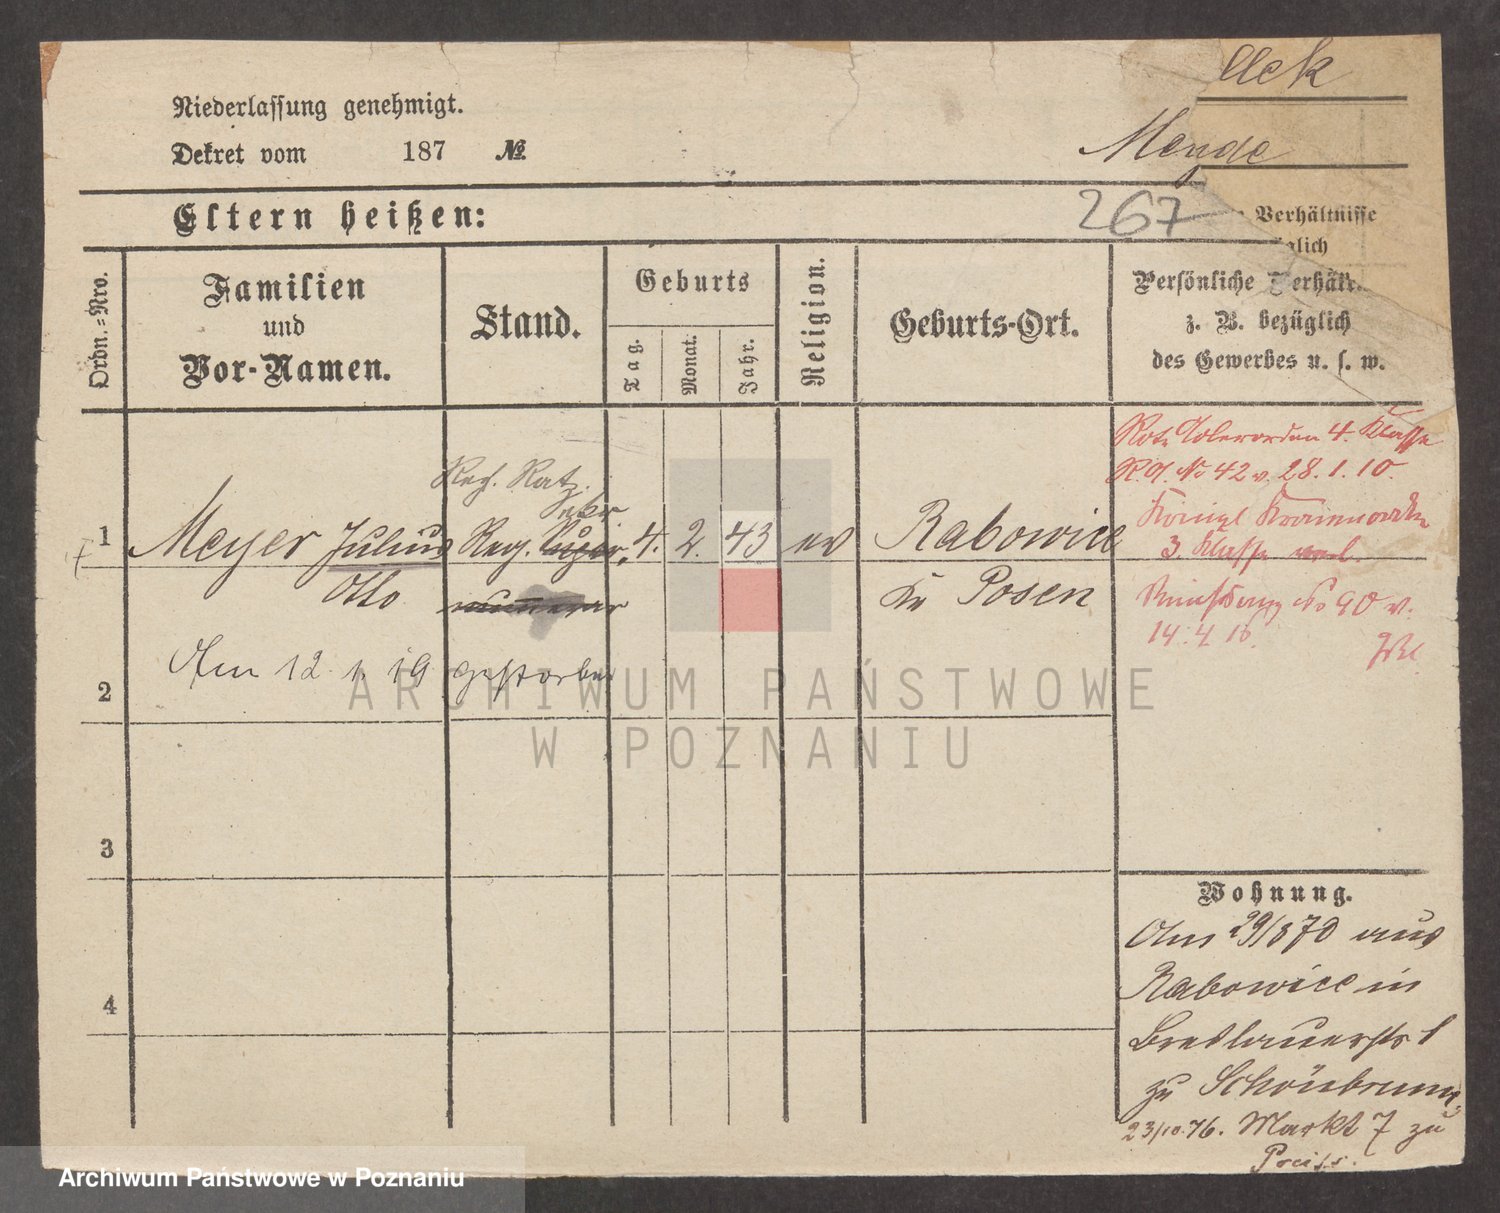 lleck
Niederlassung genehmigt.
Dekret vom 187 №.
Mengde
Eltern heißen:
267
Verhältnisse
glich
Ordn.=Nro.
Familien
und
Vor-Namen.
Stand.
Geburts
Tag.
Monat.
Jahr.
Religion.
Geburts-Ort.
Persönliche Verhält
z. B. bezüglich
des Gewerbes u. s. w.
4. Klasse
No 42 v. 28. 1. 10.
Königl Kronenorden
3. Klasse verl.
No 90 v.
14. 4. 18.
Reg. Ratz.
1 Meyer Julius Reg. 4. 2. 43 ev Rabowice
Otto Kr Posen
2 Am 12. 1. 19 gestorben
ARCHIWUM PAŃSTWOWE
W POZNANIU
3
4
Wohnung.
Am 29/8 70 aus
Rabowice in
Breslauerstr 1
zu Schönbrunn
23/10.76. Markt 7 zu
Preiss.
Archiwum Państwowe w Poznaniu